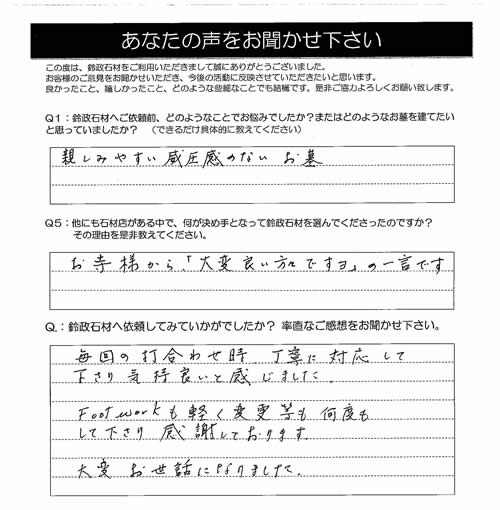 あなたの声をお聞かせ下さい
この度は、鈴政石材をご利用いただきまして誠にありがとうございました。
お客様のご意見をお聞かせいただき、今後の活動に反映させていただきたいと思います。
良かったこと、嬉しかったこと、どのような些細なことでも結構です。是非ご協力よろしくお願い致します。
Q1：鈴政石材へご依頼前、どのようなことでお悩みでしたか？またはどのようなお墓を建てたい
と思っていましたか？ （できるだけ具体的に教えてください）
親しみやすい威圧感のない お墓
Q5：他にも石材店がある中で、何が決め手となって鈴政石材を選んでくださったのですか？
その理由を是非教えてください。
お寺様から、「大変良い方々ですヨ」の一言です
Q.：鈴政石材へ依頼してみていかがでしたか？ 率直なご感想をお聞かせ下さい。
毎回の打合わせ時、丁寧に対応して
下さり気持良いと感じました。
Footworkも軽く変更等も何度も
して下さり感謝しております。
大変お世話になりました。